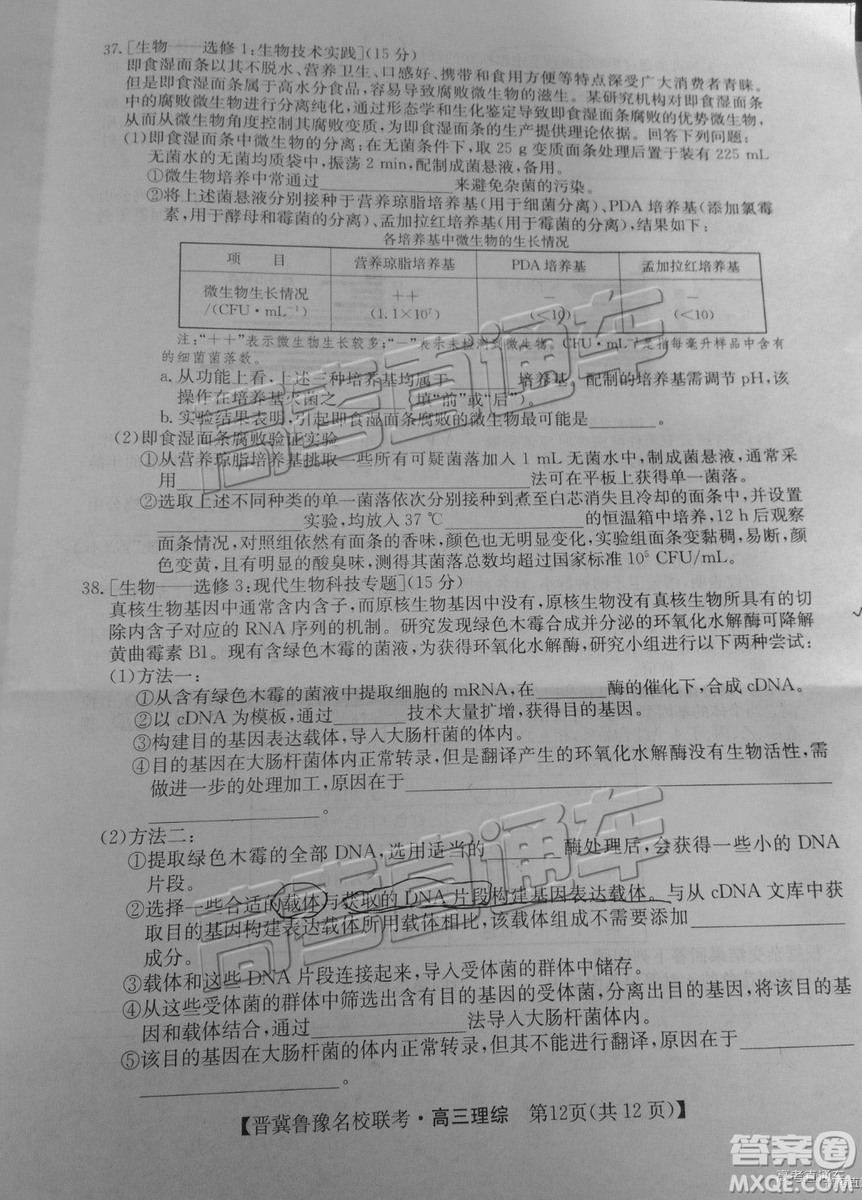 37.［生物——选修1:生物技术实践］(15分)
即食湿面条以其不脱水、营养卫生、口感好、携带和食用方便等特点深受广大消费者青睐。
但是即食湿面条属于高水分食品，容易导致腐败微生物的滋生。某研究机构对即食湿面条
中的腐败微生物进行分离纯化，通过形态学和生化鉴定导致即食湿面条腐败的优势微生物，
从而从微生物角度控制其腐败变质，为即食湿面条的生产提供理论依据。回答下列问题：
(1)即食湿面条中微生物的分离：在无菌条件下，取25 g变质面条处理后置于装有225 mL
无菌水的无菌均质袋中，振荡2 min，配制成菌悬液，备用。
①微生物培养中常通过____________来避免杂菌的污染。
②将上述菌悬液分别接种于营养琼脂培养基(用于细菌分离)、PDA培养基(添加氯霉
素，用于酵母和霉菌的分离)、孟加拉红培养基(用于霉菌的分离)，结果如下：
各培养基中微生物的生长情况
项 目 营养琼脂培养基 PDA培养基 孟加拉红培养基
微生物生长情况 ＋＋ － －
/(CFU·mL⁻¹) (1.1×10⁷) (<10) (<10)
注：“＋＋”表示微生物生长较多；“－”表示未检测到微生物。CFU·mL⁻¹是指每毫升样品中含有
的细菌菌落数。
a. 从功能上看，上述三种培养基均属于________培养基。配制的培养基需调节pH，该
操作在培养基灭菌之________(填“前”或“后”)。
b. 实验结果表明，引起即食湿面条腐败的微生物最可能是________。
(2)即食湿面条腐败验证实验
①从营养琼脂培养基挑取一些所有可疑菌落加入1 mL无菌水中，制成菌悬液，通常采
用________________________________法可在平板上获得单一菌落。
②选取上述不同种类的单一菌落依次分别接种到煮至白芯消失且冷却的面条中，并设置
____________实验，均放入37 ℃____________的恒温箱中培养，12 h后观察
面条情况，对照组依然有面条的香味，颜色也无明显变化，实验组面条变黏稠，易断，颜
色变黄，且有明显的酸臭味，测得其菌落总数均超过国家标准10⁵ CFU/mL。
38.［生物——选修3:现代生物科技专题］(15分)
真核生物基因中通常含内含子，而原核生物基因中没有，原核生物没有真核生物所具有的切
除内含子对应的RNA序列的机制。研究发现绿色木霉合成并分泌的环氧化水解酶可降解
黄曲霉素B1。现有含绿色木霉的菌液，为获得环氧化水解酶，研究小组进行以下两种尝试：
(1)方法一：
①从含有绿色木霉的菌液中提取细胞的mRNA，在________酶的催化下，合成cDNA。
②以cDNA为模板，通过________技术大量扩增，获得目的基因。
③构建目的基因表达载体，导入大肠杆菌的体内。
④目的基因在大肠杆菌体内正常转录，但是翻译产生的环氧化水解酶没有生物活性，需
做进一步的处理加工，原因在于________________________________
____________。
(2)方法二：
①提取绿色木霉的全部DNA，选用适当的________酶处理后，会获得一些小的DNA
片段。
②选择一些合适的载体与获取的DNA片段构建基因表达载体。与从cDNA文库中获
取目的基因构建表达载体所用载体相比，该载体组成不需要添加____________
成分。
③载体和这些DNA片段连接起来，导入受体菌的群体中储存。
④从这些受体菌的群体中筛选出含有目的基因的受体菌，分离出目的基因，将该目的基
因和载体结合，通过____________法导入大肠杆菌体内。
⑤该目的基因在大肠杆菌的体内正常转录，但其不能进行翻译，原因在于________
____________。
【晋冀鲁豫名校联考·高三理综 第12页(共12页)】
高考直通车
高考直通车
答案圈
MXQE.COM
高考直通车